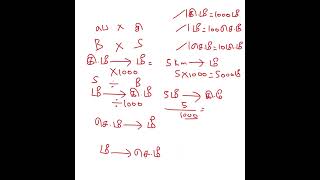 ப x சி
B x S
கி.மீ → மீ =
x1000
S ÷ B
மீ → கி.மீ
÷1000
செ.மீ → மீ
மீ → செ.மீ
1கி.மீ = 1000மீ
1மீ = 100செ.மீ
1செ.மீ = 10மி.மீ
5km → மீ
5x1000 = 5000மீ
5மீ → கி.மீ
5/1000 =